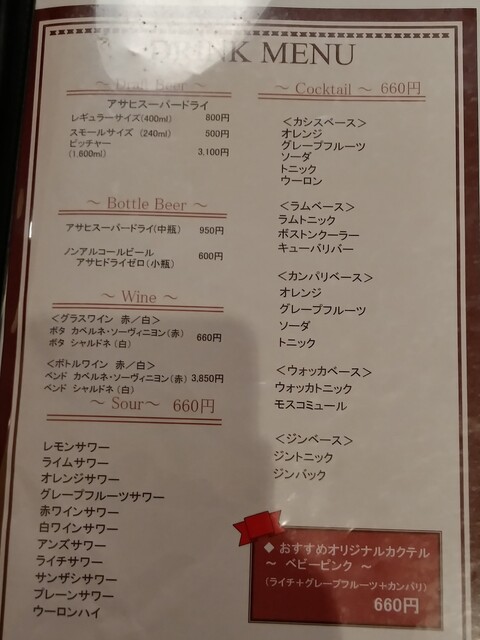 DRINK MENU
～ Draft Beer ～
アサヒスーパードライ
レギュラーサイズ(400ml) 800円
スモールサイズ (240ml) 500円
ピッチャー
(1,600ml) 3,100円
～ Bottle Beer ～
アサヒスーパードライ(中瓶) 950円
ノンアルコールビール 600円
アサヒドライゼロ(小瓶)
～ Wine ～
＜グラスワイン 赤／白＞
ボタ カベルネ・ソーヴィニヨン(赤) 660円
ボタ シャルドネ (白)
＜ボトルワイン 赤／白＞
ベンド カベルネ・ソーヴィニヨン(赤) 3,850円
ベンド シャルドネ (白)
～ Sour～ 660円
レモンサワー
ライムサワー
オレンジサワー
グレープフルーツサワー
赤ワインサワー
白ワインサワー
アンズサワー
ライチサワー
サンザシサワー
プレーンサワー
ウーロンハイ
～ Cocktail ～ 660円
＜カシスベース＞
オレンジ
グレープフルーツ
ソーダ
トニック
ウーロン
＜ラムベース＞
ラムトニック
ボストンクーラー
キューバリバー
＜カンパリベース＞
オレンジ
グレープフルーツ
ソーダ
トニック
＜ウォッカベース＞
ウォッカトニック
モスコミュール
＜ジンベース＞
ジントニック
ジンバック
◆ おすすめオリジナルカクテル
～ ベビーピンク ～
(ライチ＋グレープフルーツ＋カンパリ)
660円